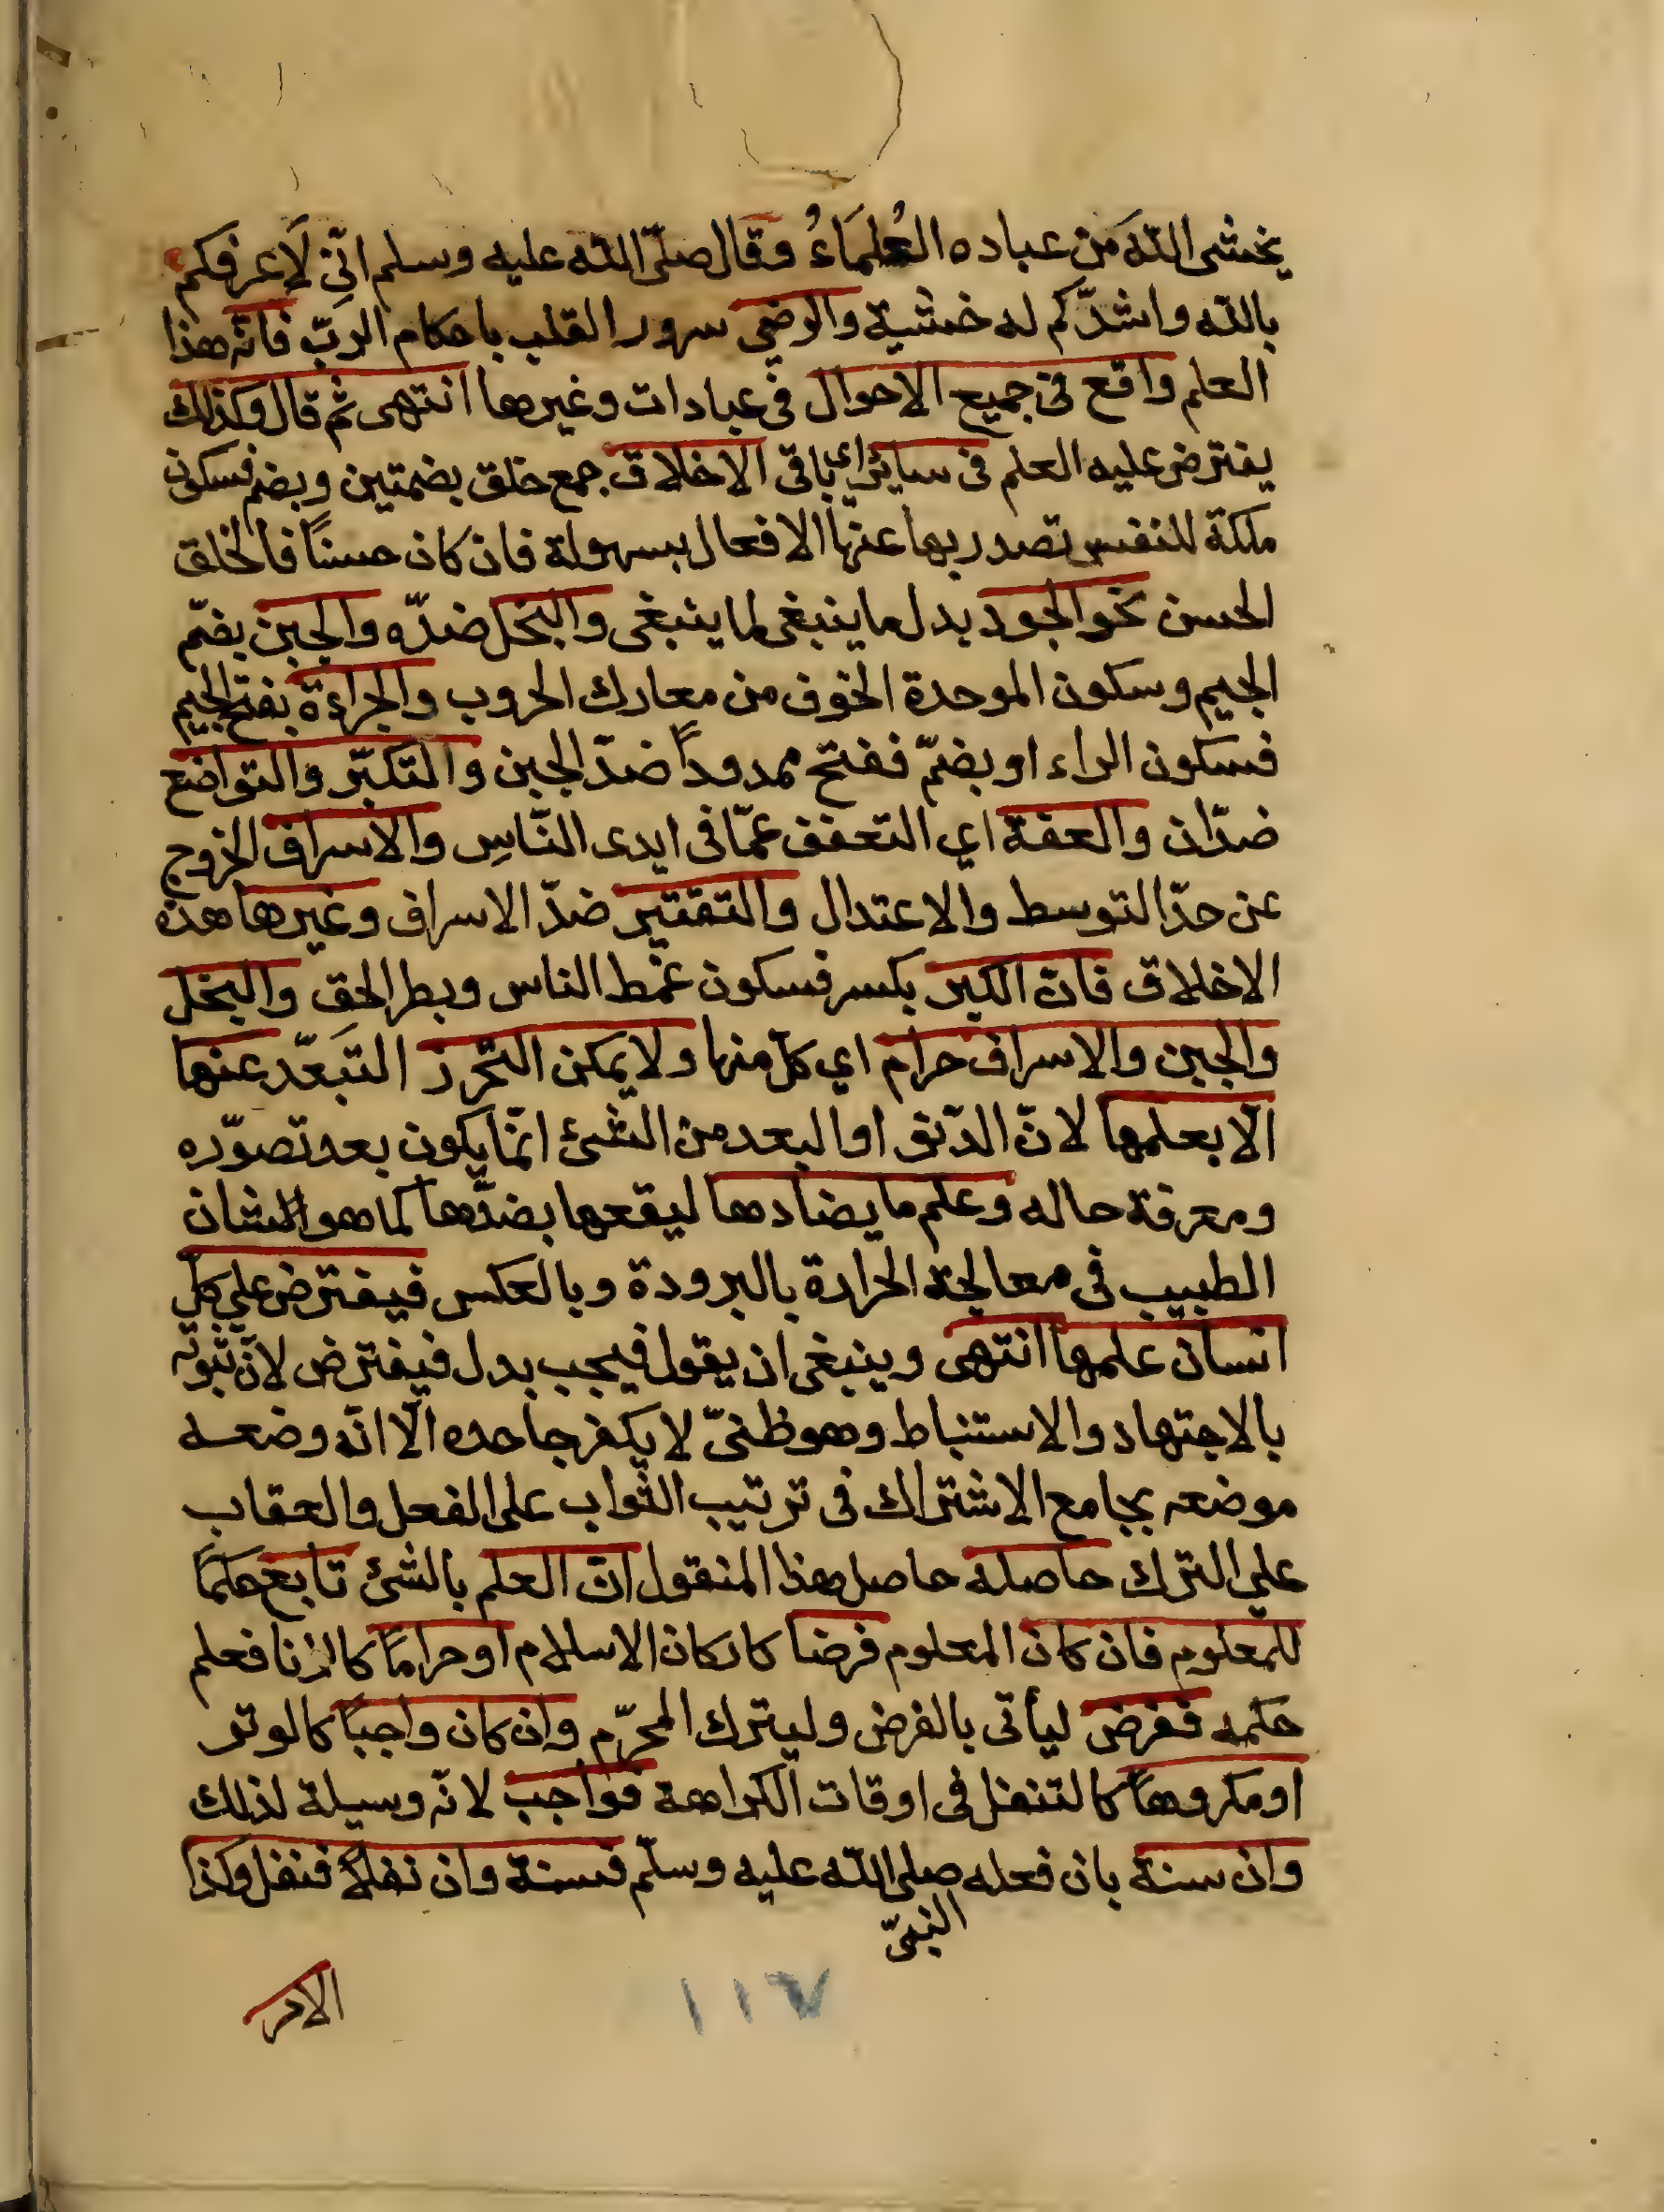 يخشى الله من عباده العُلَمَاءُ وقال صلّى الله عليه وسلم انّي لَاعرفكم
بالله واشدّكم له خشية والرضى سرور القلب باحكام الربّ فانّه هذا
العلم واقع في جميع الاحوال في عبادات وغيرها انتهى ثم قال وكذلك
يفترض عليه العلم في سائر اي باقي الاخلاق جمع خلق بضمتين وبضم فسكون
ملكة للنفس تصدر بها عنها الافعال بسهولة فان كان حسناً فالخلق
الحسن نحو الجود بدل ما ينبغي لما ينبغي والبخل ضدّه والجبن بضمّ
الجيم وسكون الموحدة الخوف من معارك الحروب والجراءة بفتح الجيم
فسكون الراء او بضمّ ففتح ممدوداً ضدّ الجبن والتكبّر والتواضع
ضدّان والعفة اي التعفف عمّا في ايدى النّاسِ والاسراف الخروج
عن حدّ التوسط والاعتدال والتقتير ضدّ الاسراف وغيرها هذه
الاخلاق فانّ الكبر بكسر فسكون غمط الناس وبطر الحق والبخل
والجبن والاسراف حرام اي كلّ منها ولا يمكن التحّرز التبَعّد عنها
الّا بعلمها لانّ الدّنو او البعد من الشئ انمّا يكون بعد تصوّره
ومعرفة حاله وعلم ما يضادها ليقعها بضدّها كما هو الشان
الطبيب في معالجة الحرارة بالبرودة وبالعكس فيفترض على كلّ
انسان علمها انتهى وينبغي ان يقول فيجب بدل فيفترض لانّ ثبوته
بالاجتهاد والاستنباط وهو ظنيّ لا يكفر جاحده الّا انّه وضعه
موضعه بجامع الاشتراك في ترتيب الثواب على الفعل والعقاب
على الترك حاصله حاصل هذا المنقول انّ العلم بالشئ تابع حكماً
للمعلوم فان كان المعلوم فرضا كاركان الاسلام او حراماً كالزنا فعلم
حكمه ففرض ليأتى بالفرض وليترك المحرّم وان كان واجباً كالوتر
او مكروهاً كالتنفل في اوقات الكراهة فواجب لانّه وسيلة لذلك
وان سنة بان فعله صلى الله عليه وسلّم فسنة وان نفلاً فنفل وكذا
النبيّ
١١٧
الامر